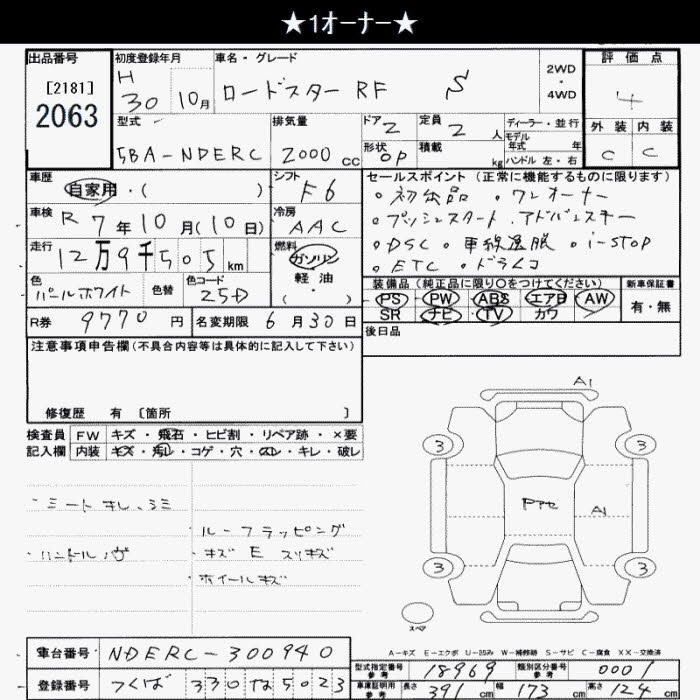 ★1オーナー★
出品番号 初度登録年月 車名・グレード 2WD・4WD 評価点
[2181] H 30 10月 ロードスターRF S 4
2063
型式 排気量 ドア2 定員 2 人 ディーラー・並行 外装 内装
モデル年式 年式
5BA-NDERC 2000 cc 形状 OP 積載 kg ハンドル 左・右 C C
車歴 シフト セールスポイント (正常に機能するものに限ります)
自家用・( ) F6 ・初出品 ・ワンオーナー
車検 R 7年10月(10日) 冷房 AAC ・プッシュスタート .アドバンスキー
走行 12万9千505km 燃料 ガソリン ・DSC ・車線逸脱 ・i-STOP
軽油 ・ETC ・ドラレコ
( ・ )
色 色替 色コード 装備品 (純正品に限り○をつけてください) 新車保証書
パールホワイト 25D PS PW ABS エアB AW 有・無
SR ナビ TV カワ
R券 9770 円 名変期限 6月30日 後日品
注意事項申告欄(不具合内容等は具体的に記入して下さい)
修復歴 有 〔箇所 〕
検査員 FW キズ・飛石・ヒビ割・リペア跡・×要
記入欄 内装 キズ・汚レ・コゲ・穴・スレ・キレ・破レ
A1
3 3
・シートキレ、シミ
・ルーフラッピング
A1
・ハンドルハゲ ・キズ E スリキズ
・ホイールキズ
3 3
スペア
A-キズ E-エクボ U-凹み W-補修跡 S-サビ C-腐食 XX-交換済
車台番号 NDERC-300940
型式指定番号 参考 18969 類別区分番号 参考 0001
登録番号 つくば 330 な 5023
車庫証明用 参考 長さ 391 cm 幅 173 cm 高さ 124 cm